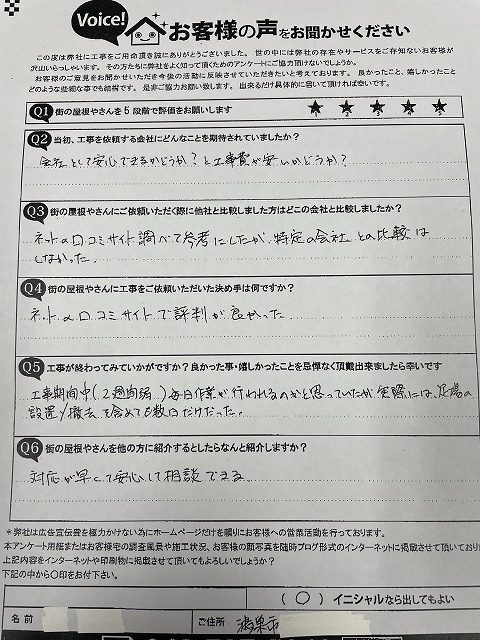 Voice!
お客様の声をお聞かせください
この度は弊社に工事をご用命頂き誠にありがとうございました。世の中には弊社の存在やサービスをご存知ないお客様が
沢山いらっしゃいます。その方たちに弊社をよく知って頂くためのアンケートにご協力頂けないでしょうか。
お客様のご意見をお聞かせいただき今後の活動に反映させていただきたいと考えております。良かったこと、嬉しかったこと
どのような些細な事でも結構です。是非ご協力お願い致します。出来るだけ具体的に書いて頂ければ幸いです。
Q1 街の屋根やさんを5段階で評価をお願いします
★1 ★2 ★3 ★4 ★5
Q2 当初、工事を依頼する会社にどんなことを期待されていましたか?
会社として安心できるかどうか?と工事費が安いかどうか?
Q3 街の屋根やさんにご依頼いただく際に他社と比較しました方はどこの会社と比較しましたか?
ネットの口コミサイト調べて参考にしたが、特定の会社との比較は
しなかった。
Q4 街の屋根やさんに工事をご依頼いただいた決め手は何ですか?
ネットの口コミサイトで評判が良かった
Q5 工事が終わってみていかがですか?良かった事・嬉しかったことを忌憚なく頂戴出来ましたら幸いです
工事期間中(2週間弱)毎日作業が行われるのかと思っていたが、実際には、足場の
設置/撤去を含めても数日だけだった。
Q6 街の屋根やさんを他の方に紹介するとしたらなんと紹介しますか?
対応が早くて安心して相談できる
*弊社は広告宣伝費を極力かけない為にホームページだけを頼りにお客様への営業活動を行っております。
本アンケート用紙またはお客様宅の調査風景や施工状況、お客様の顔写真を随時ブログ形式のインターネットに掲載させて頂いており
上記内容をインターネットや印刷物に掲載させて頂いてもよろしいでしょうか?
下記の中から○印をお付下さい。
(○)イニシャルなら出してもよい
名前
ご住所 鴻巣市